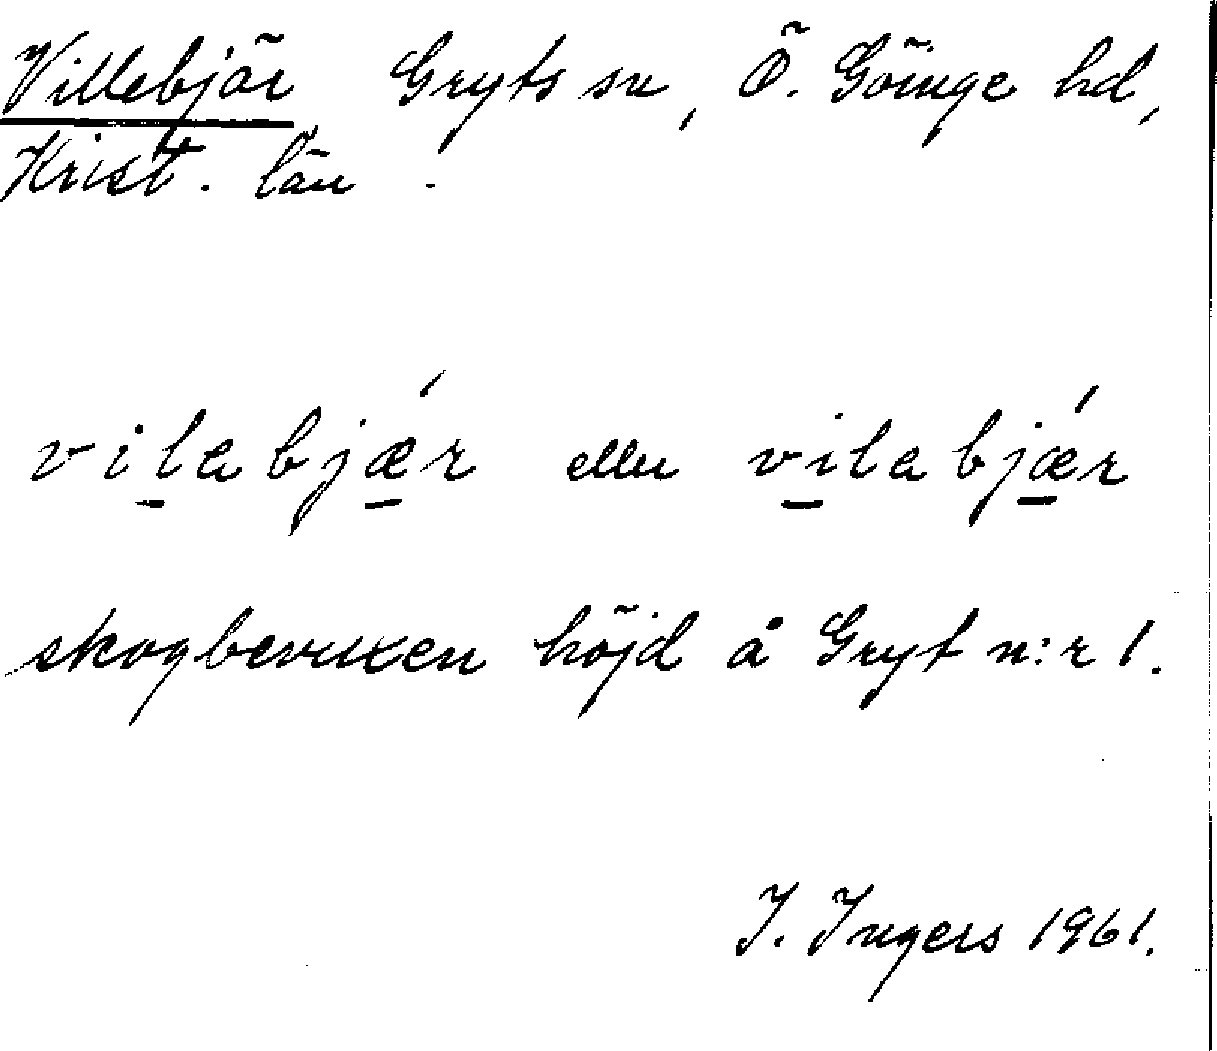 Villebjär Gryts sn, Ö. Göinge hd,
Krist. län.
vi̱l̲abjǽ̲r eller vi̲labjǽ̲r
skogbevuxen höjd å Gryt n:r 1.
I. Ingers 1961.